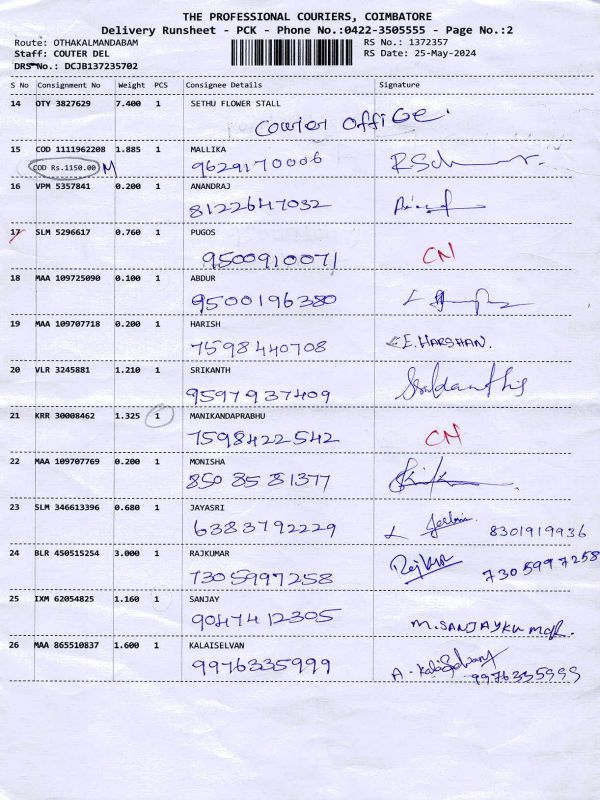 THE PROFESSIONAL COURIERS, COIMBATORE
Delivery Runsheet - PCK - Phone No.:0422-3505555 - Page No.:2
Route: OTHAKALMANDABAM RS No.: 1372357
Staff: COUTER DEL RS Date: 25-May-2024
DRS No.: DCJB137235702
S No Consignment No Weight PCS Consignee Details Signature
14 OTY 3827629 7.400 1 SETHU FLOWER STALL
Courier office.
15 COD 1111962208 1.885 1 MALLIKA
COD Rs.1150.00 M 9629170006
16 VPM 5357841 0.200 1 ANANDRAJ
8122647032
17 SLM 5296617 0.760 1 PUGOS
9500910071 CN
18 MAA 109725090 0.100 1 ABDUR
9500196380
19 MAA 109707718 0.200 1 HARISH
7598440708 E. HARSHAN.
20 VLR 3245881 1.210 1 SRIKANTH
9597937409
21 KRR 30008462 1.325 1 MANIKANDAPRABHU
7598422542 CN
22 MAA 109707769 0.200 1 MONISHA
850 85 81377
23 SLM 346613396 0.680 1 JAYASRI
6383792229 8301919936
24 BLR 450515254 3.000 1 RAJKUMAR Rajkur
7305997258 7305997258
25 IXM 62054825 1.160 1 SANJAY
9047412305 M. SANJAYKU
26 MAA 865510837 1.600 1 KALAISELVAN
9976335999 A. Kalaiselvan 9976335999